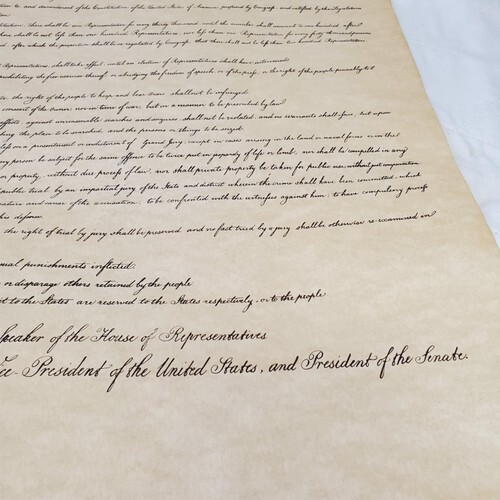 to and amendment of the Constitution of the United States of America, proposed by Congress and ratified by the Legislatures
there shall be one Representative for every thirty thousand, until the number shall amount to one hundred, after
there shall be not less than one hundred Representatives, nor less than one Representative for every forty thousand persons
after which the proportion shall be so regulated by Congress, that there shall not be less than two hundred Representatives
Representatives, shall take effect, until an election of Representatives shall have intervened.
prohibiting the free exercise thereof; or abridging the freedom of speech, or of the press, or the right of the people peaceably to
the right of the people to keep and bear arms shall not be infringed.
consent of the owner, nor in time of war, but in a manner to be prescribed by law
against unreasonable searches and seizures shall not be violated, and no warrants shall issue, but upon
the place to be searched, and the persons or things to be seized.
on a presentment or indictment of a Grand Jury, except in cases arising in the land or naval forces or in the
any person be subject for the same offence to be twice put in jeopardy of life or limb, nor shall be compelled in any
or property, without due process of law; nor shall private property be taken for public use, without just compensation
public trial by an impartial jury of the State and district wherein the crime shall have been committed, which
nature and cause of the accusation; to be confronted with the witnesses against him; to have compulsory process
his defence.
the right of trial by jury shall be preserved and no fact tried by a jury shall be otherwise re-examined in
punishments inflicted.
or disparage others retained by the people
it to the States are reserved to the States respectively, or to the people
Speaker of the House of Representatives
President of the United States, and President of the Senate.